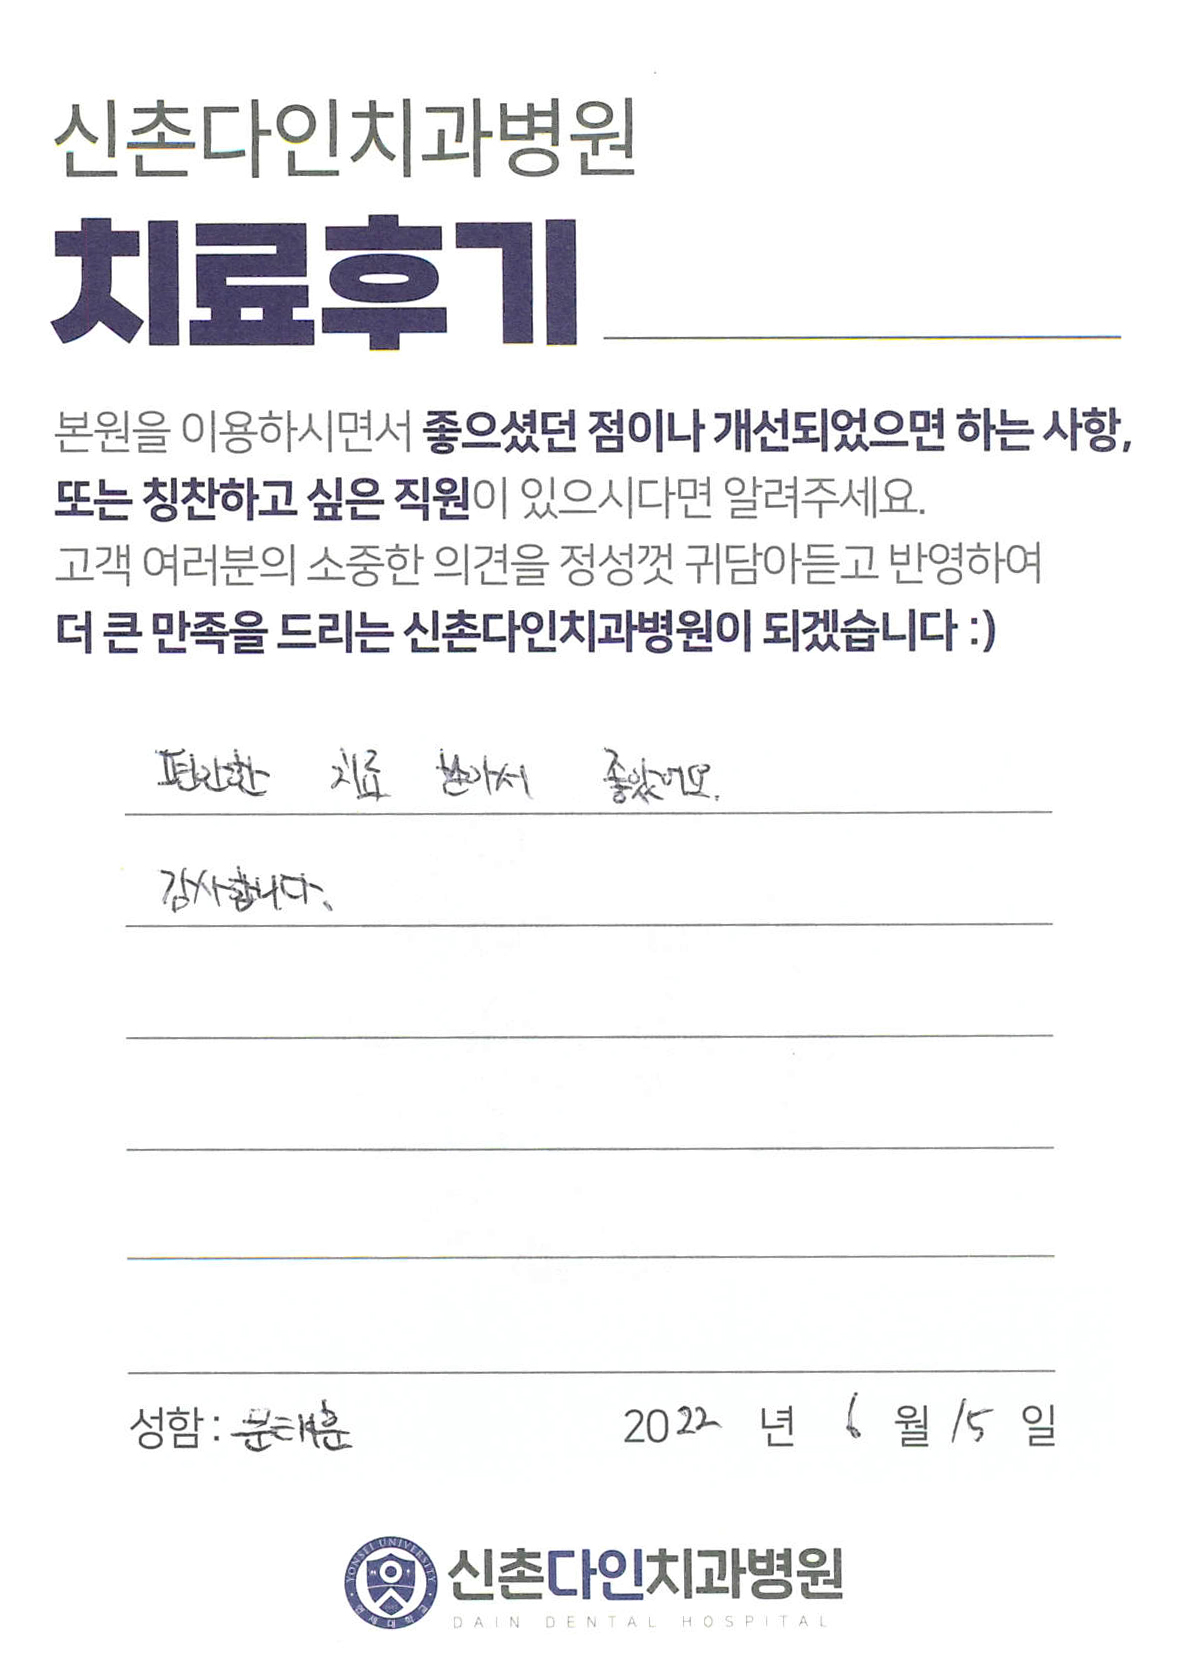 신촌다인치과병원
치료후기
본원을 이용하시면서 좋으셨던 점이나 개선되었으면 하는 사항,
또는 칭찬하고 싶은 직원이 있으시다면 알려주세요.
고객 여러분의 소중한 의견을 정성껏 귀담아듣고 반영하여
더 큰 만족을 드리는 신촌다인치과병원이 되겠습니다 :)
편안한 치료 받아서 좋았어요.
감사합니다.
성함 : 문태훈 2022 년 6 월 15 일
YONSEI UNIVERSITY
연세대학교
신촌다인치과병원
DAIN DENTAL HOSPITAL